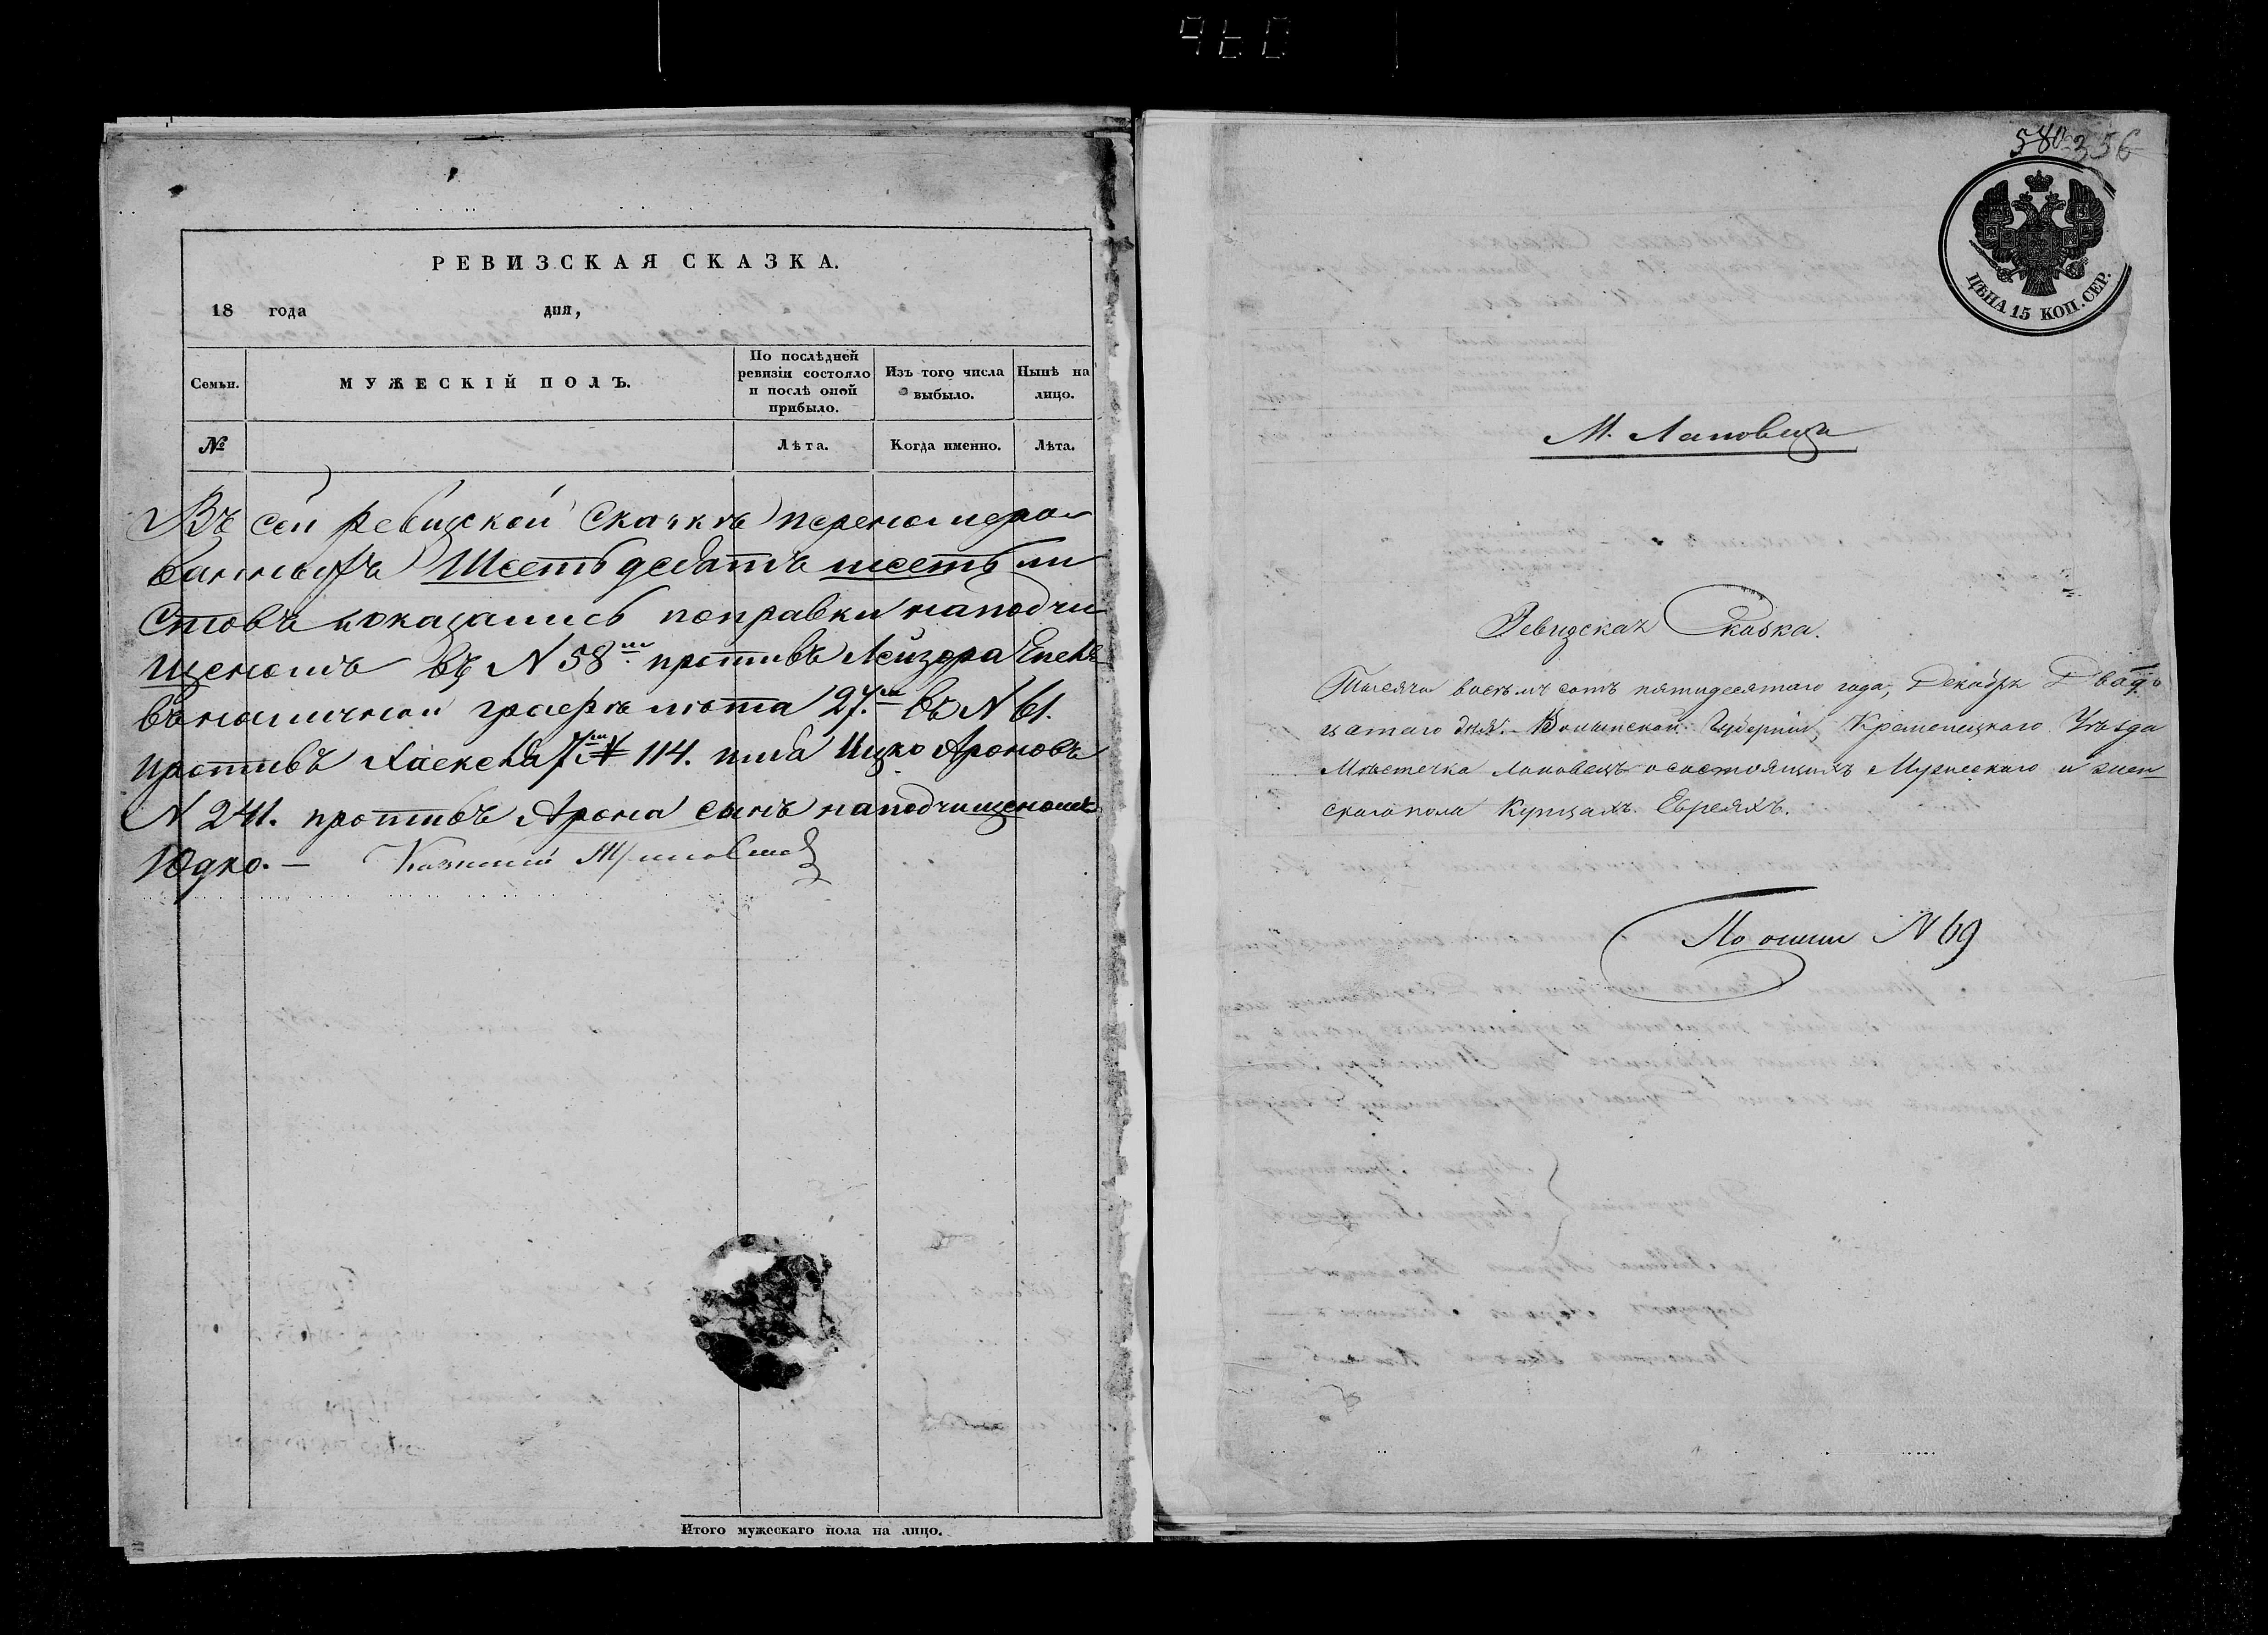 960
РЕВИЗСКАЯ СКАЗКА.
18 года дня,
Семьи.
МУЖЕСКІЙ ПОЛЪ.
По послѣдней ревизіи состояло и послѣ оной прибыло.
Изъ того числа выбыло.
Нынѣ на лицо.
№
Лѣта.
Когда именно.
Лѣта.
Въ сей ревизской Сказкѣ перенумеро
ванныхъ Шестьдесятъ шесть ли
стовъ и оказались поправки на подчи
щеномъ въ N 58 противъ Лейзора
въ наличной графѣ лѣта 27. въ N 61.
противъ 114. Ицко Ароновъ
N 241. противъ Арона сынъ на подчищеномъ
Юдко. —
Итого мужескаго пола на лицо.
580 356
ЦѢНА 15 КОП. СЕР.
М. Лановецъ
Ревизская Сказка.
Тысяча восемь сотъ пятидесятаго года, Декабря Двад
цатаго дня. Волынской Губерніи, Кременецкаго Уѣзда
Мѣстечка Лановецъ о состоящихъ Мужескаго и жен
скаго пола Купцахъ Евреяхъ.
По описи N 69